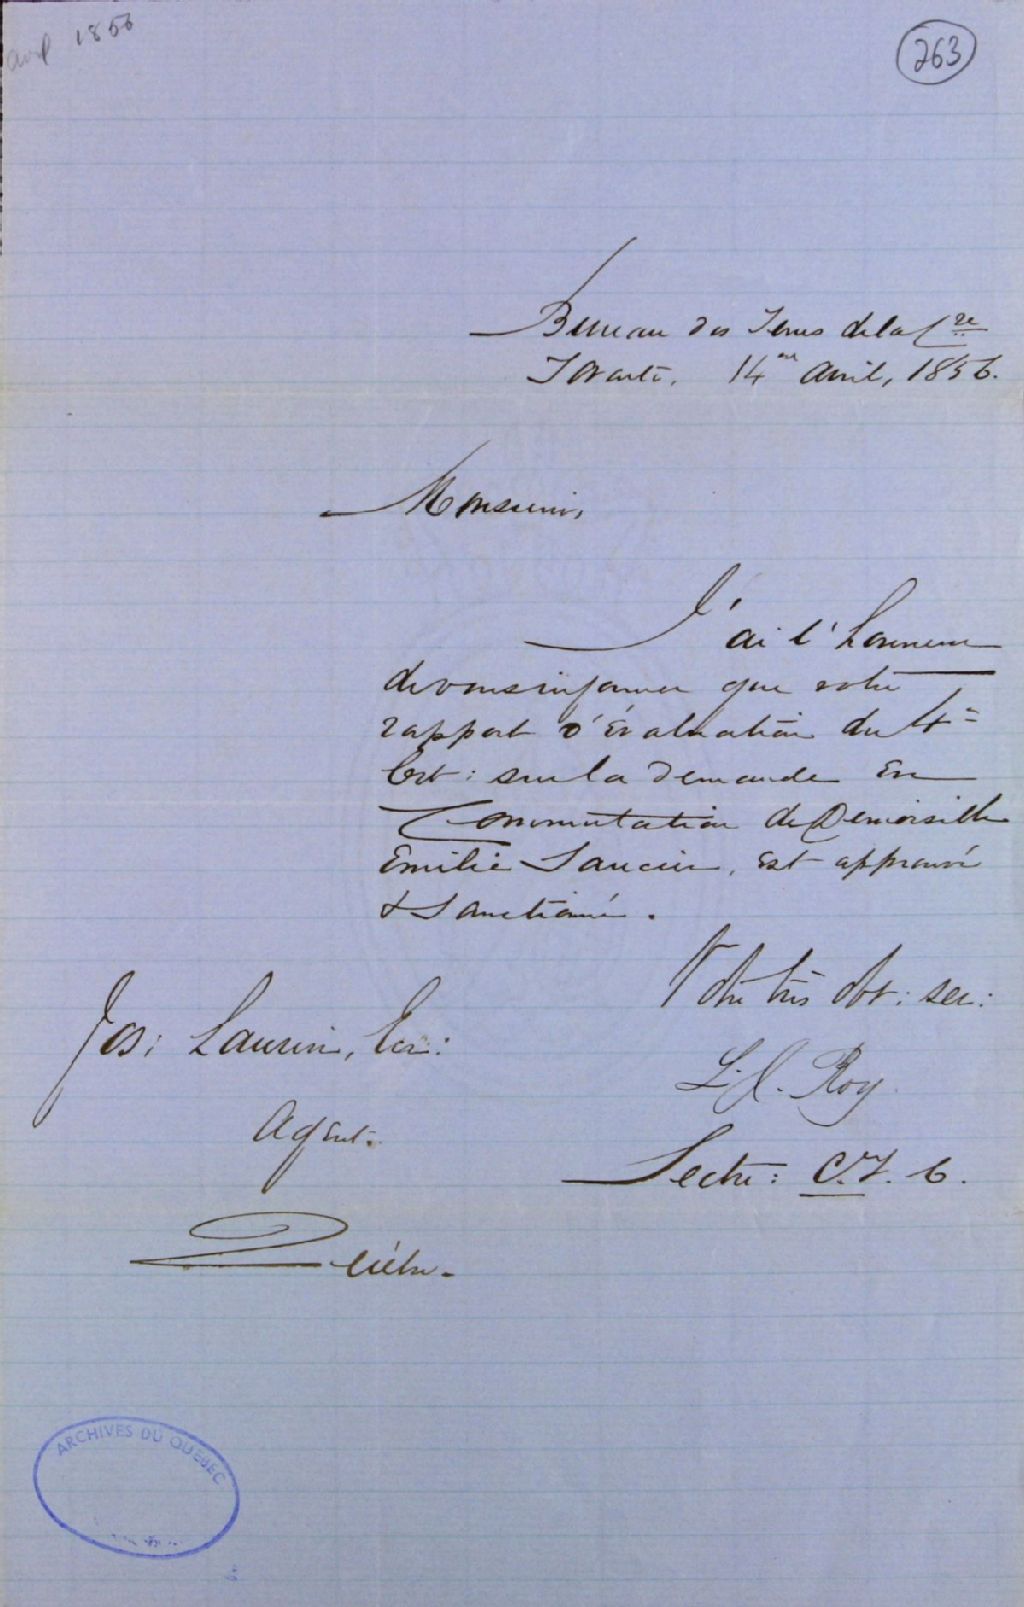 avril 1856
263
Bureau des Terres de la Cne
Toronto, 14me Avril, 1856.
Monsieur,
J'ai l'honneur
de vous informer que votre
rapport d'Évaluation du 4
Crt: sur la demande en
Commutation de Demoiselle
Emilie Saucier, est approuvé
& Sanctionné.
Votre très obt: ser:
Jos: Laurin, Ecr:
Roy
Agent.
Sectre: C.T.C.
Québec.
ARCHIVES DU QUÉBEC